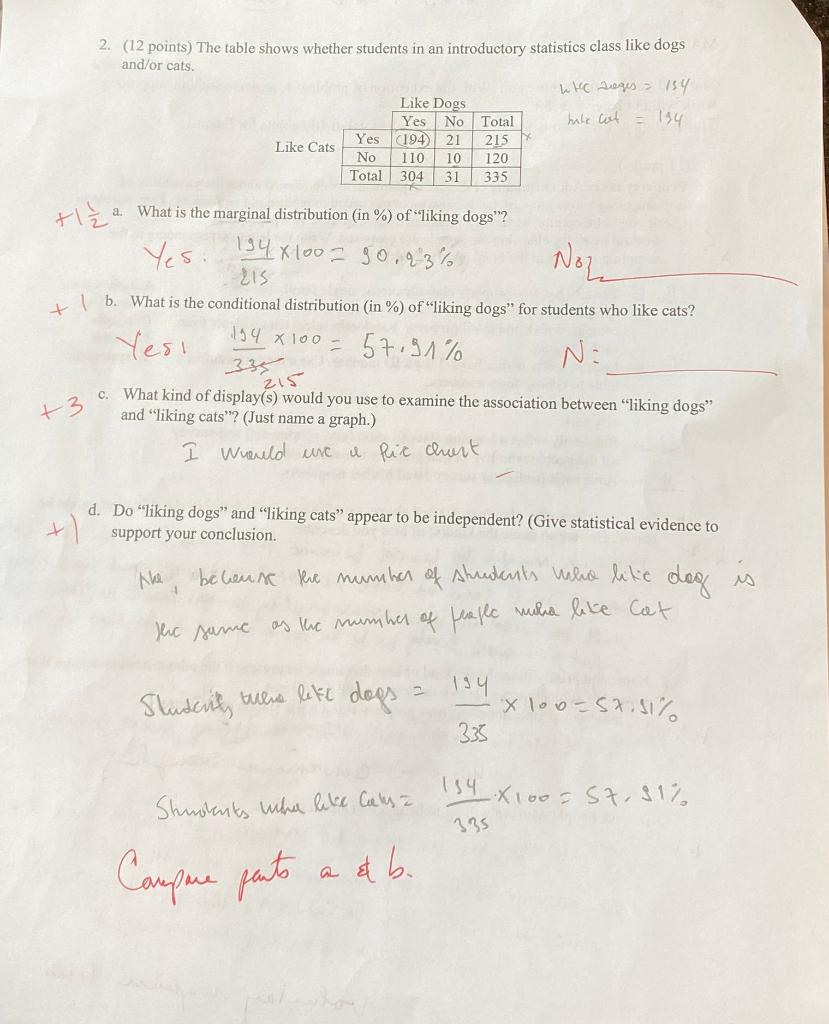 2. (12 points) The table shows whether students in an introductory statistics class like dogs
and/or cats.
like dogs = 194
like cat = 194
Like Dogs
Yes No Total
Like Cats Yes 194 21 215 x
No 110 10 120
Total 304 31 335
+1 1/2 a. What is the marginal distribution (in %) of "liking dogs"?
Yes. 194/215 x 100 = 90.23% No:
+1 b. What is the conditional distribution (in %) of "liking dogs" for students who like cats?
Yes: 194/335 x 100 = 57.91% N:
215
+3 c. What kind of display(s) would you use to examine the association between "liking dogs"
and "liking cats"? (Just name a graph.)
I would use a Pie chart
+1 d. Do "liking dogs" and "liking cats" appear to be independent? (Give statistical evidence to
support your conclusion.
No, because the number of students who like dog is
the same as the number of people who like Cat
Students who like dogs = 194/335 x 100 = 57.91%
Students who like Cats = 194/335 x 100 = 57.91%
Compare parts a & b.